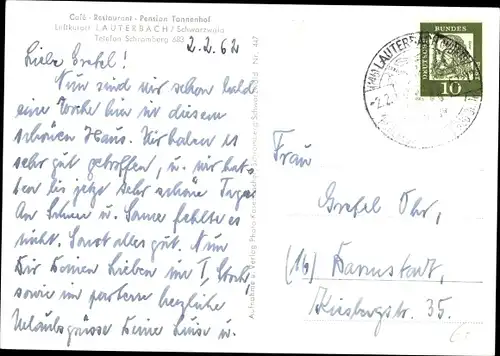 Café - Restaurant - Pension Tannenhof
Luftkurort LAUTERBACH / Schwarzwald
Telefon Schramberg 683
2.2.62
Liebe Gretel!
Nun sind wir schon bald
eine Woche hier in diesem
schönen Haus. Wir haben es
sehr gut getroffen, u. wir hat-
ten bis jetzt sehr schöne Tage.
An Schnee u. Sonne fehlte es
nicht. Sonst alles gut. Nun
Dir Deinen Lieben im I. Stock
sowie im parterre herzliche
Urlaubsgrüsse Deine Luise u.
Nr. 447
LAUTERBACH
2.2.
DEUTSCHE BUNDESPOST
10
Frau
Gretel Ohr,
(16) Darmstadt,
Kiesbergstr. 35.